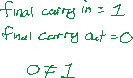 final carry in = 1
final carry out = 0
0 ≠ 1